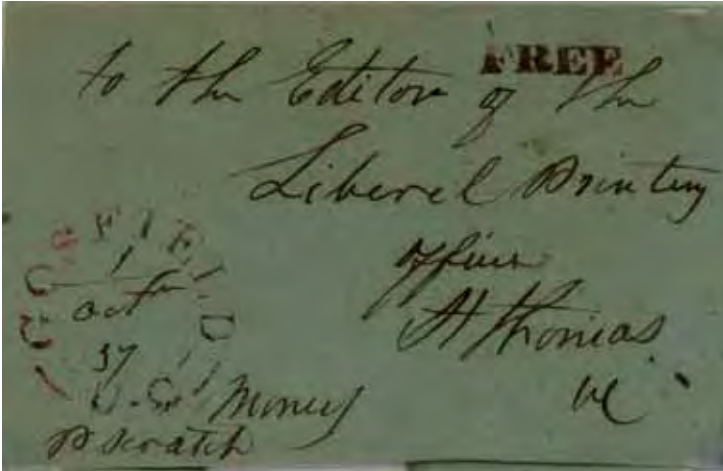 FREE
to the Editor of the
Liberel Printing
office
St Thomas
GOSFIELD
Oct
37
U.C.
Money
P Scratch